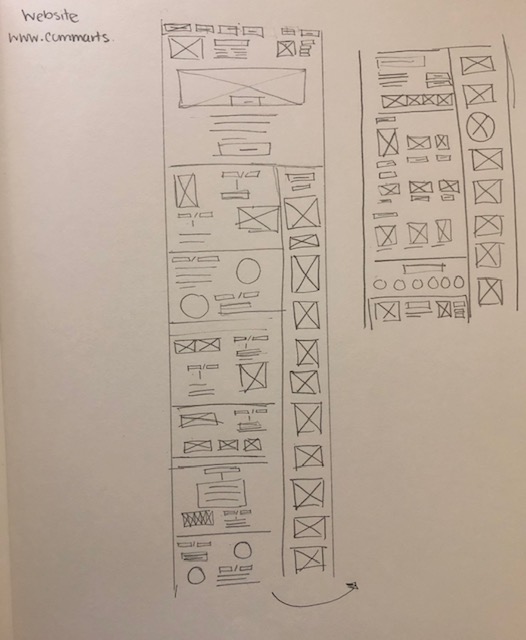 Website
www.commarts.